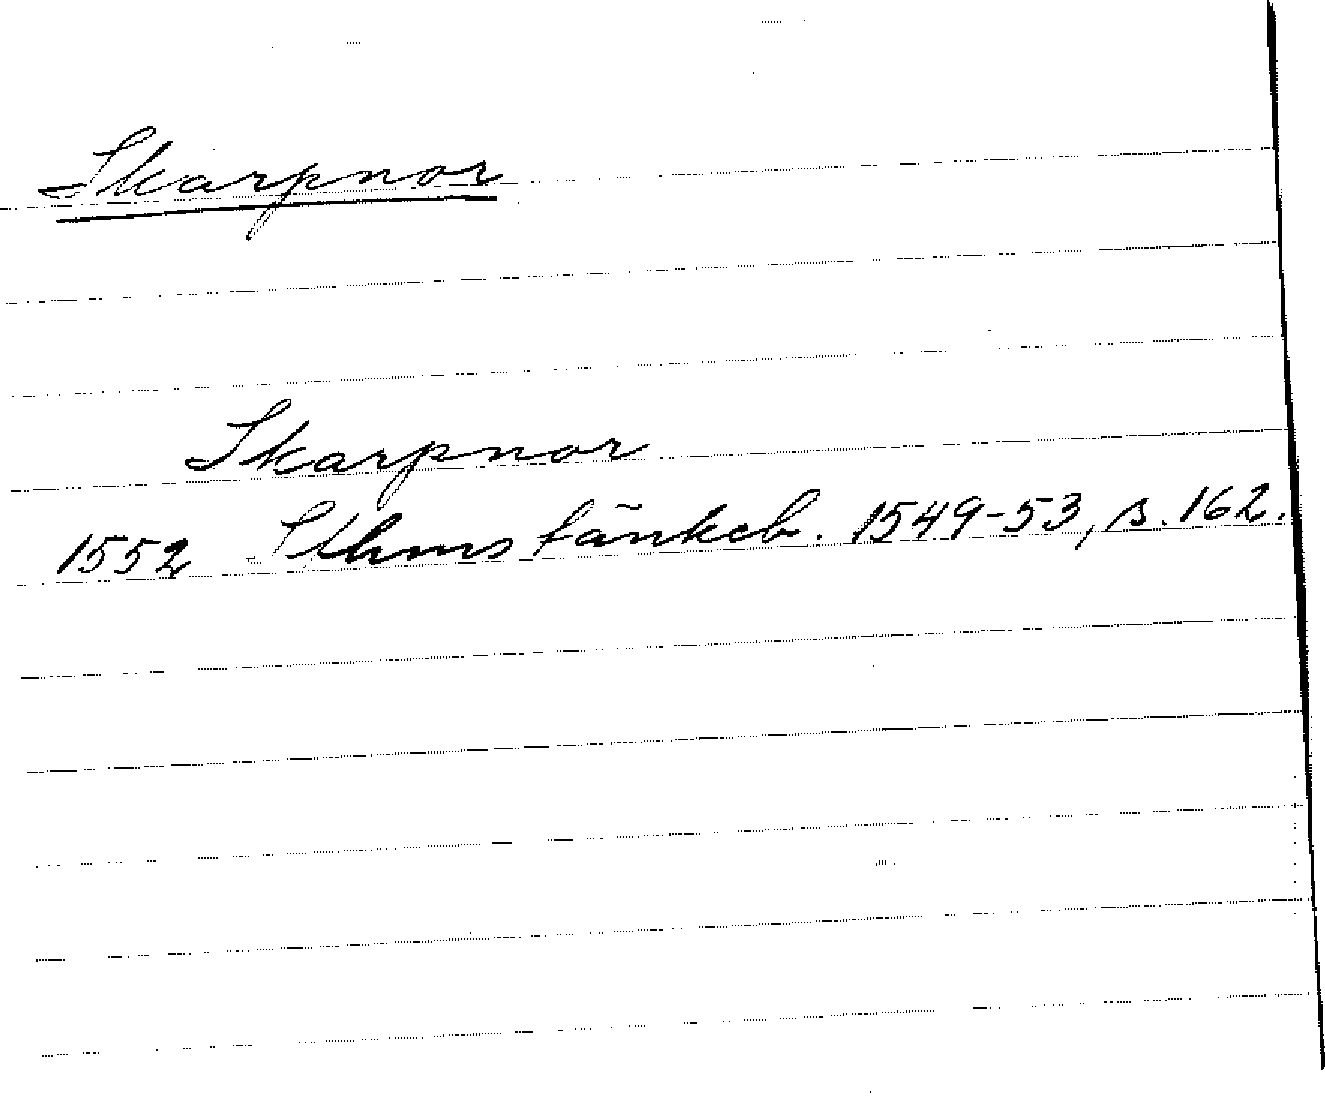 Skarpnor
Skarpnor
1552 Sthms tänkeb. 1549-53, s. 162.